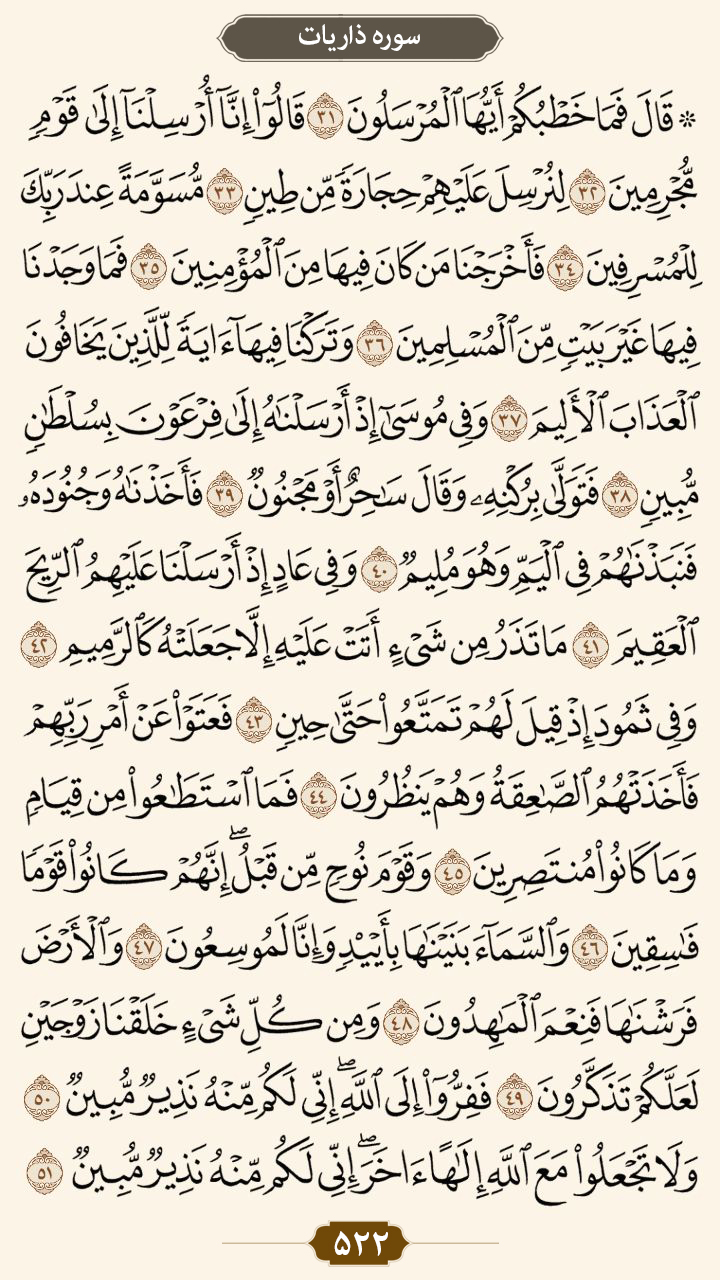 سوره ذاریات
۞ قَالَ فَمَا خَطْبُكُمْ أَيُّهَا ٱلْمُرْسَلُونَ ٣١ قَالُوٓا۟ إِنَّآ أُرْسِلْنَآ إِلَىٰ قَوْمٍ
مُّجْرِمِينَ ٣٢ لِنُرْسِلَ عَلَيْهِمْ حِجَارَةً مِّن طِينٍ ٣٣ مُّسَوَّمَةً عِندَ رَبِّكَ
لِلْمُسْرِفِينَ ٣٤ فَأَخْرَجْنَا مَن كَانَ فِيهَا مِنَ ٱلْمُؤْمِنِينَ ٣٥ فَمَا وَجَدْنَا
فِيهَا غَيْرَ بَيْتٍ مِّنَ ٱلْمُسْلِمِينَ ٣٦ وَتَرَكْنَا فِيهَآ ءَايَةً لِّلَّذِينَ يَخَافُونَ
ٱلْعَذَابَ ٱلْأَلِيمَ ٣٧ وَفِى مُوسَىٰٓ إِذْ أَرْسَلْنَٰهُ إِلَىٰ فِرْعَوْنَ بِسُلْطَٰنٍ
مُّبِينٍ ٣٨ فَتَوَلَّىٰ بِرُكْنِهِۦ وَقَالَ سَٰحِرٌ أَوْ مَجْنُونٌ ٣٩ فَأَخَذْنَٰهُ وَجُنُودَهُۥ
فَنَبَذْنَٰهُمْ فِى ٱلْيَمِّ وَهُوَ مُلِيمٌ ٤٠ وَفِى عَادٍ إِذْ أَرْسَلْنَا عَلَيْهِمُ ٱلرِّيحَ
ٱلْعَقِيمَ ٤١ مَا تَذَرُ مِن شَىْءٍ أَتَتْ عَلَيْهِ إِلَّا جَعَلَتْهُ كَٱلرَّمِيمِ ٤٢
وَفِى ثَمُودَ إِذْ قِيلَ لَهُمْ تَمَتَّعُوا۟ حَتَّىٰ حِينٍ ٤٣ فَعَتَوْا۟ عَنْ أَمْرِ رَبِّهِمْ
فَأَخَذَتْهُمُ ٱلصَّٰعِقَةُ وَهُمْ يَنظُرُونَ ٤٤ فَمَا ٱسْتَطَٰعُوا۟ مِن قِيَامٍ
وَمَا كَانُوا۟ مُنتَصِرِينَ ٤٥ وَقَوْمَ نُوحٍ مِّن قَبْلُ ۖ إِنَّهُمْ كَانُوا۟ قَوْمًا
فَٰسِقِينَ ٤٦ وَٱلسَّمَآءَ بَنَيْنَٰهَا بِأَيْي۟دٍ وَإِنَّا لَمُوسِعُونَ ٤٧ وَٱلْأَرْضَ
فَرَشْنَٰهَا فَنِعْمَ ٱلْمَٰهِدُونَ ٤٨ وَمِن كُلِّ شَىْءٍ خَلَقْنَا زَوْجَيْنِ
لَعَلَّكُمْ تَذَكَّرُونَ ٤٩ فَفِرُّوٓا۟ إِلَى ٱللَّهِ ۖ إِنِّى لَكُم مِّنْهُ نَذِيرٌ مُّبِينٌ ٥٠
وَلَا تَجْعَلُوا۟ مَعَ ٱللَّهِ إِلَٰهًا ءَاخَرَ ۖ إِنِّى لَكُم مِّنْهُ نَذِيرٌ مُّبِينٌ ٥١
۵۲۲